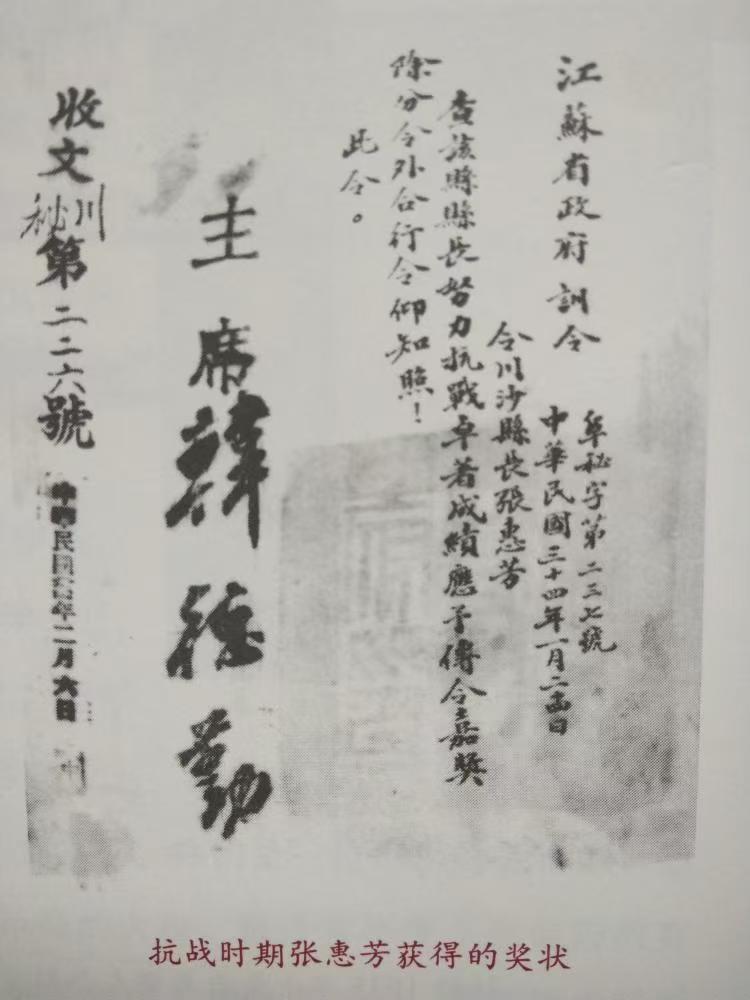 江蘇省政府訓令
阜秘字第二三七號
中華民國三十四年一月二十四日
令川沙縣長張惠芳
查該縣縣長努力抗戰卓著成績應予傳令嘉獎
除分令外合行令仰知照！
此令。
主席韓德勤
收文
川秘
第二二六號
中華民國 年二月六日
抗战时期张惠芳获得的奖状